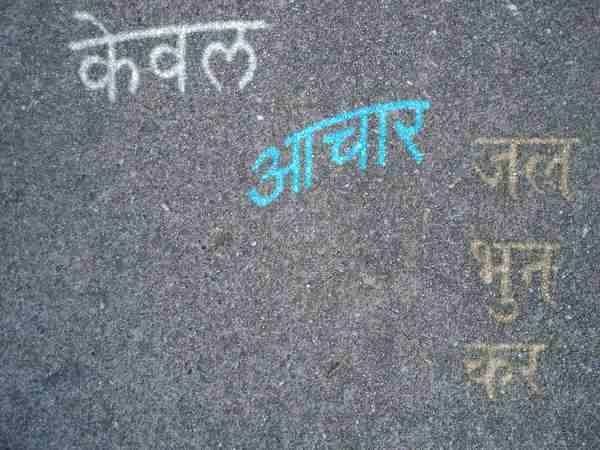 केवल
आचार
जल
भुन
कर